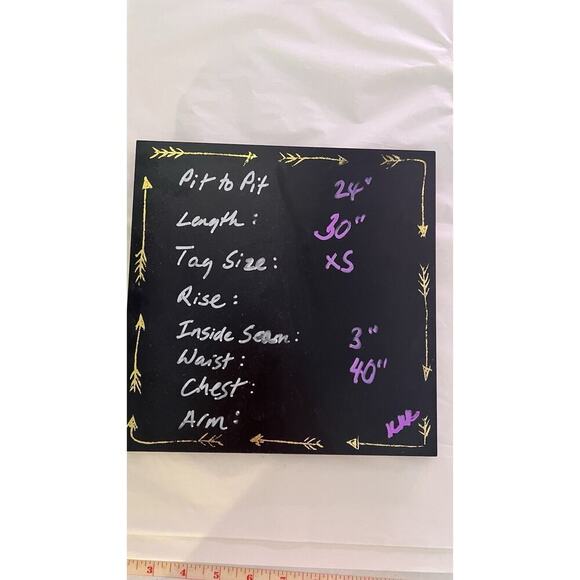 Pit to Pit 24"
Length: 30"
Tag Size: XS
Rise:
Inside Seam: 3"
Waist: 40"
Chest:
Arm:
KKK
3 4 5 6 7 8 9 10